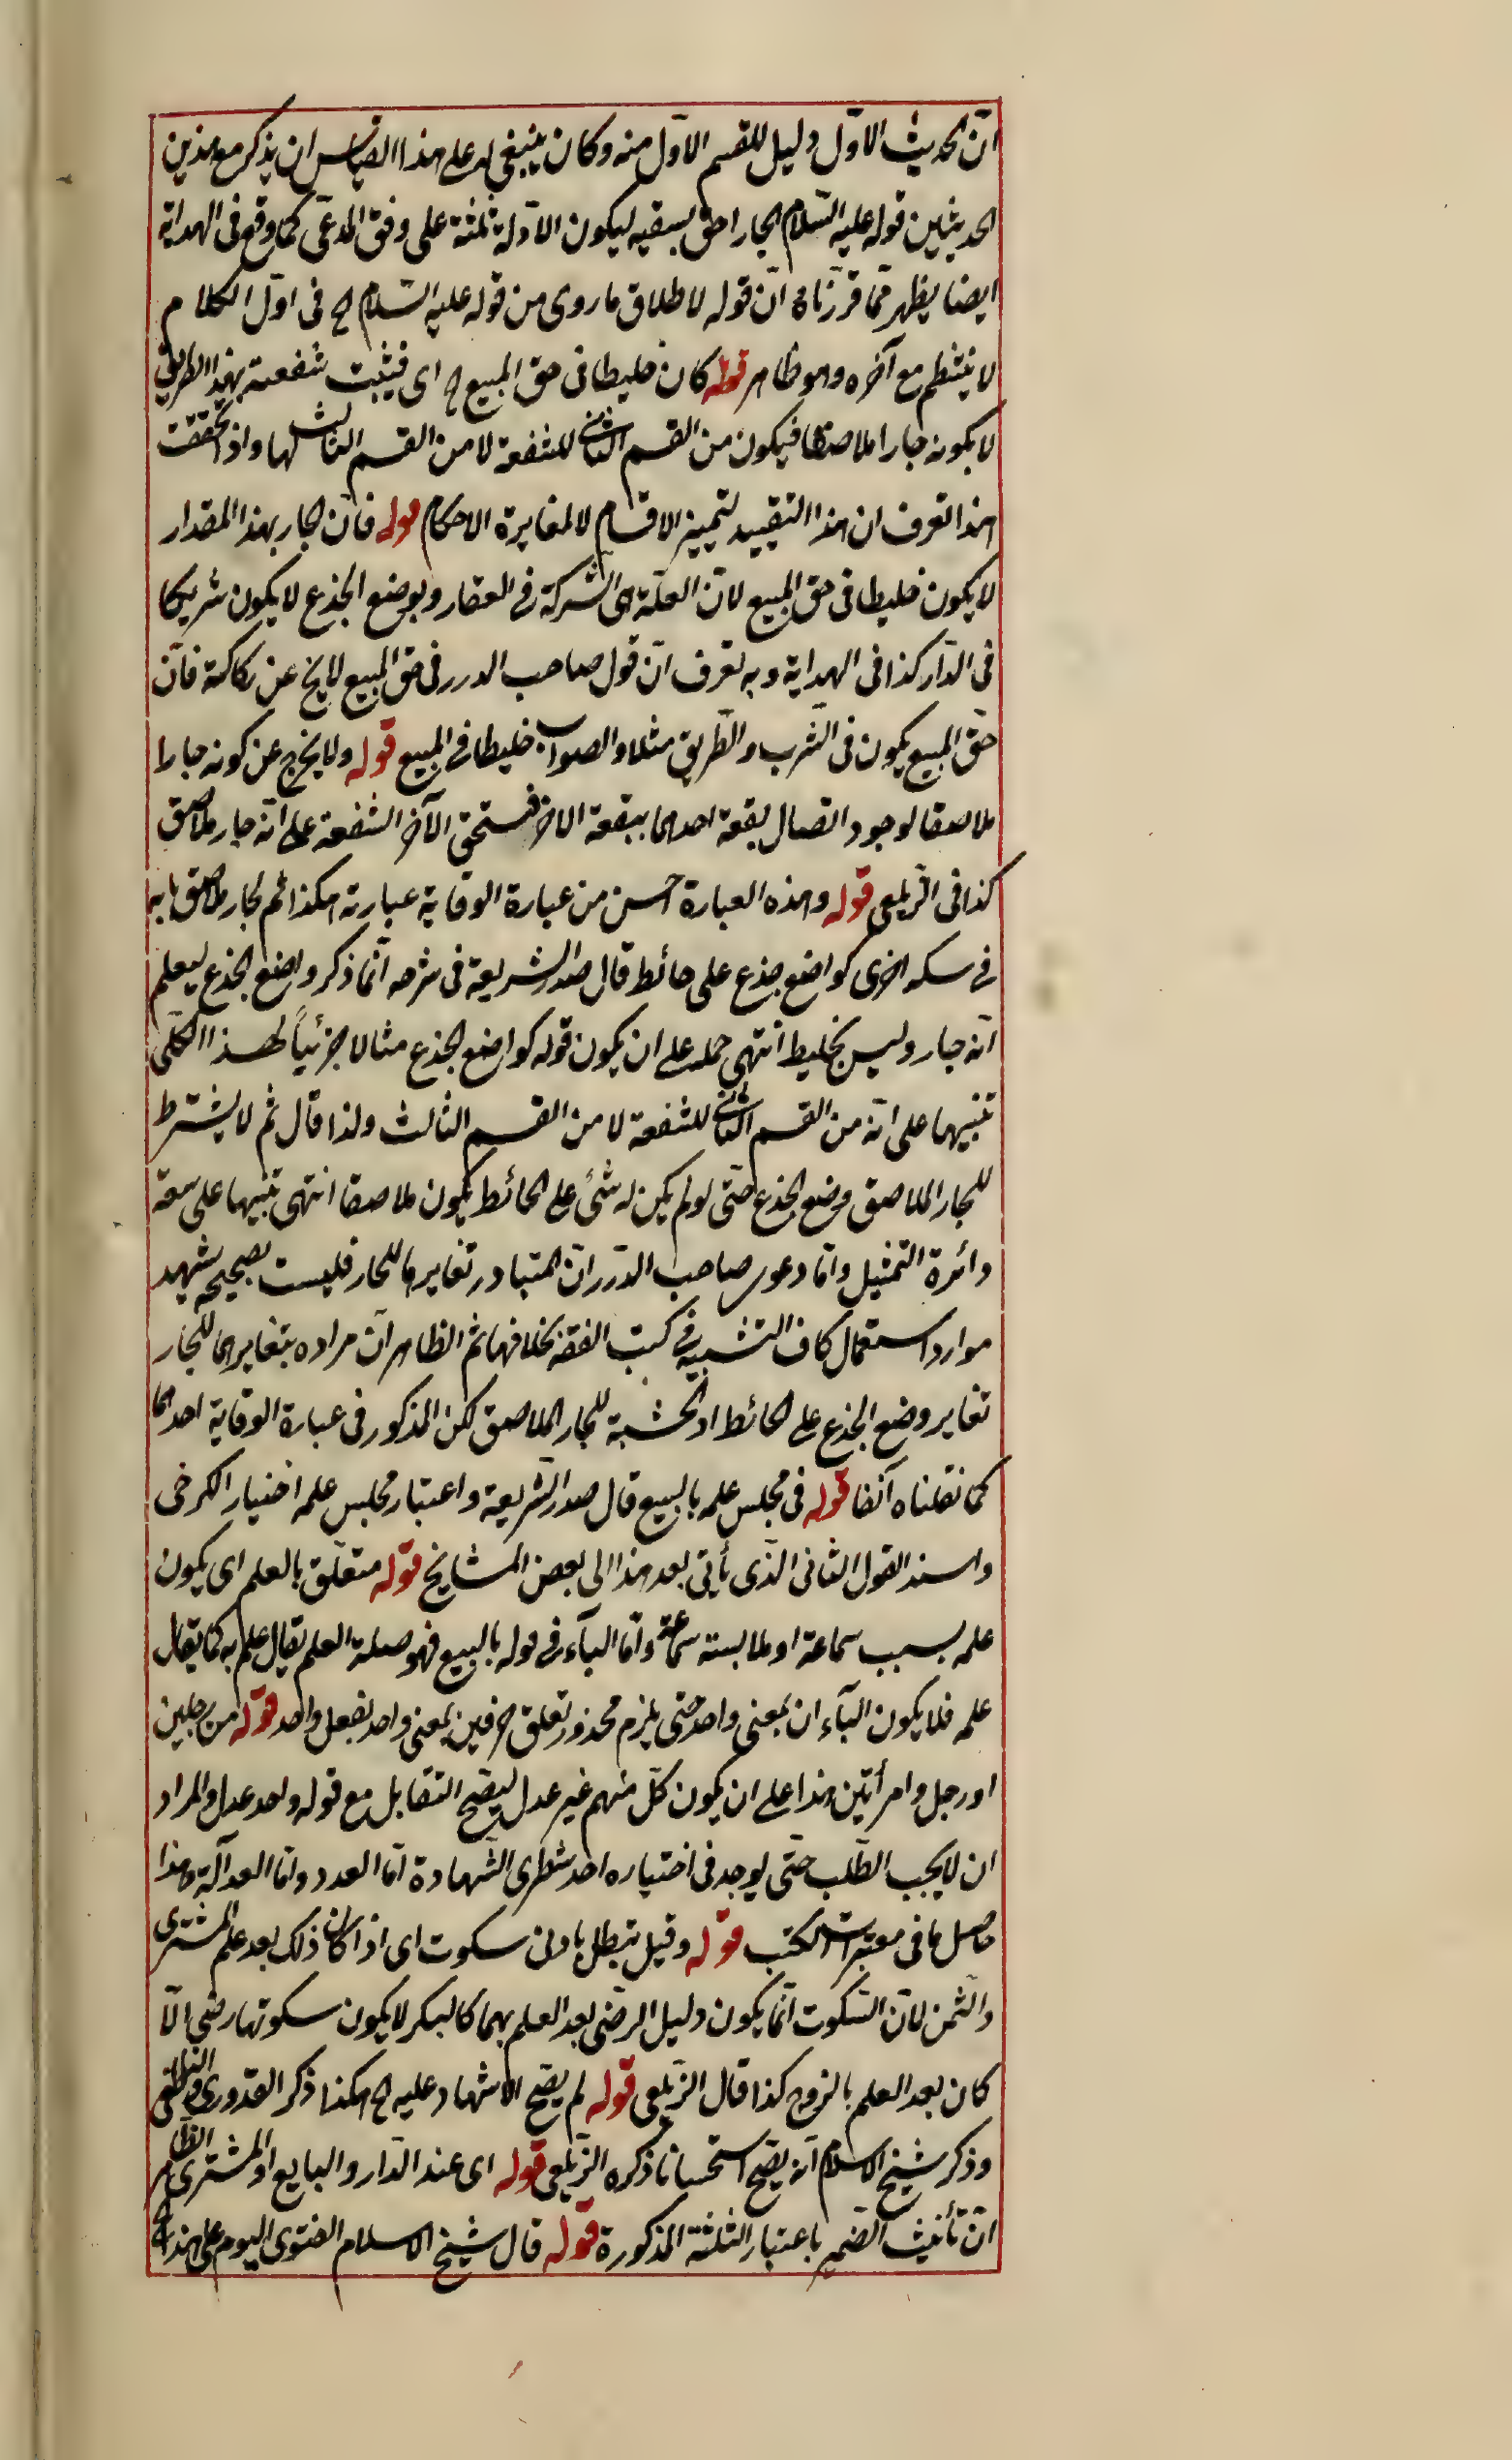 انّ الحديث الاوّل دليل للقسم الاوّل منه وكان ينبغى له على هذا القياس ان يذكر مع هذين
الحديثين قوله عليه السّلام الجار احق بسقبه ليكون الادلة ثلثة على وفق المدّعى كما وقع فى الهداية
ايضا يظهر ممّا قررّناه انّ قوله لاطلاق ما روى من قوله عليه السّلام الخ فى اوّل الكلام
لا ينتظم مع آخره وهو ظاهر قوله كان خليطا فى حق المبيع الخ اى فيثبت شفعته بهذا الطريق
لا بكونه جارا ملاصقا فيكون من القسم الثانى للشفعة لا من القسم الثالث لها واذا تحققت
هذا تعرف ان هذا التقييد لتمييز الاقسام لا لمغايرة الاحكام قوله فانّ الجار بهذا المقدار
لا يكون خليطا فى حق المبيع لانّ العلّة هى الشركة فى العقار وبوضع الجذع لا يكون شريكا
فى الدّار كذا فى الهداية وبه تعرف انّ قول صاحب الدرر فى حق المبيع لا يخ عن ركاكة فانّ
حقّ المبيع يكون فى الشرب والطّريق مثلا والصواب خليطا فى المبيع قوله ولا يخرج عن كونه جارا
ملاصقا لوجود اتصال بقعة احدهما ببقعة الاخر فيستحق الآخر الشفعة على انّه جار ملاصق
كذا فى الزّيلعى قوله وهذه العبارة احسن من عبارة الوقاية عبارته هكذا ثم لجار ملاصق بابه
فى سكة اخرى كواضع جذع على حائط قال صدر الشريعة فى شرحه انّما ذكر واضع الجذع ليعلم
انّه جار وليس بخليط انتهى حمله على ان يكون قوله كواضع الجذع مثالا جزئيّاً لهذا الكلّى
تنبيها على انّه من القسم الثانى للشفعة لا من القسم الثالث ولذا قال ثم لا يشترط
للجار الملاصق وضع الجذع حتى لو لم يكن له شئ على الحائط يكون ملاصقا انتهى تنبيها على سعة
دائرة التمثيل وامّا دعوى صاحب الدّرر انّ المتبادر تغايرها للجار فليست بصحيحه يشهد
موارد استعمال كاف التشبيه فى كتب الفقه بخلافها ثم الظاهر انّ مراده بتغايرهما للجار
تغاير وضع الجذع على الحائط او الخشبة للجار الملاصق لكن المذكور فى عبارة الوقاية احدهما
كما نقلناه آنفا قوله فى مجلس علمه بالبيع قال صدر الشّريعة واعتبار مجلس علمه اختيار الكرخى
واسند القول الثانى الّذى يأتى بعد هذا الى بعض المشايخ قوله متعلّق بالعلم اى يكون
علمه بسبب سماعة او ملابسته سماعة وامّا البآء فى قوله بالبيع فهو صلة العلم يقال علم به كما يقال
علمه فلا يكون البآء ان بمعنى واحد حتى يلزم محذور تعلق حرفين بمعنى واحد بفعل واحد قوله من رجلين
او رجل وامرأتين هذا على ان يكون كلّ منهم غير عدل ليصحّ التقابل مع قوله واحد عدل والمراد
ان لا يجب الطّلب حتّى يوجد فى اختياره احد شطرى الشّهادة امّا العدد وامّا العدالة وهذا
حاصل ما فى معتبرات الكتب قوله وقيل تبطل بادنى سكوت اى اذا كان ذلك بعد علم المشترى
والثّمن لانّ السّكوت انّما يكون دليل الرضى بعد العلم بهما كالبكر لا يكون سكوتها رضى الّا
كان بعد العلم بالزوج كذا قال الزّيلعى قوله لم يصحّ الاشهاد عليه الخ هكذا ذكر القدورى والناطفى
وذكر شيخ الاسلام انّه يصحّ استحسانا ذكره الزّيلعى قوله اى عند الدّار والبايع او المشترى الظاهر
انّ تأنيث الضّمير باعتبار الثلثة المذكورة قوله قال شيخ الاسلام الفتوى اليوم على هذا الخ